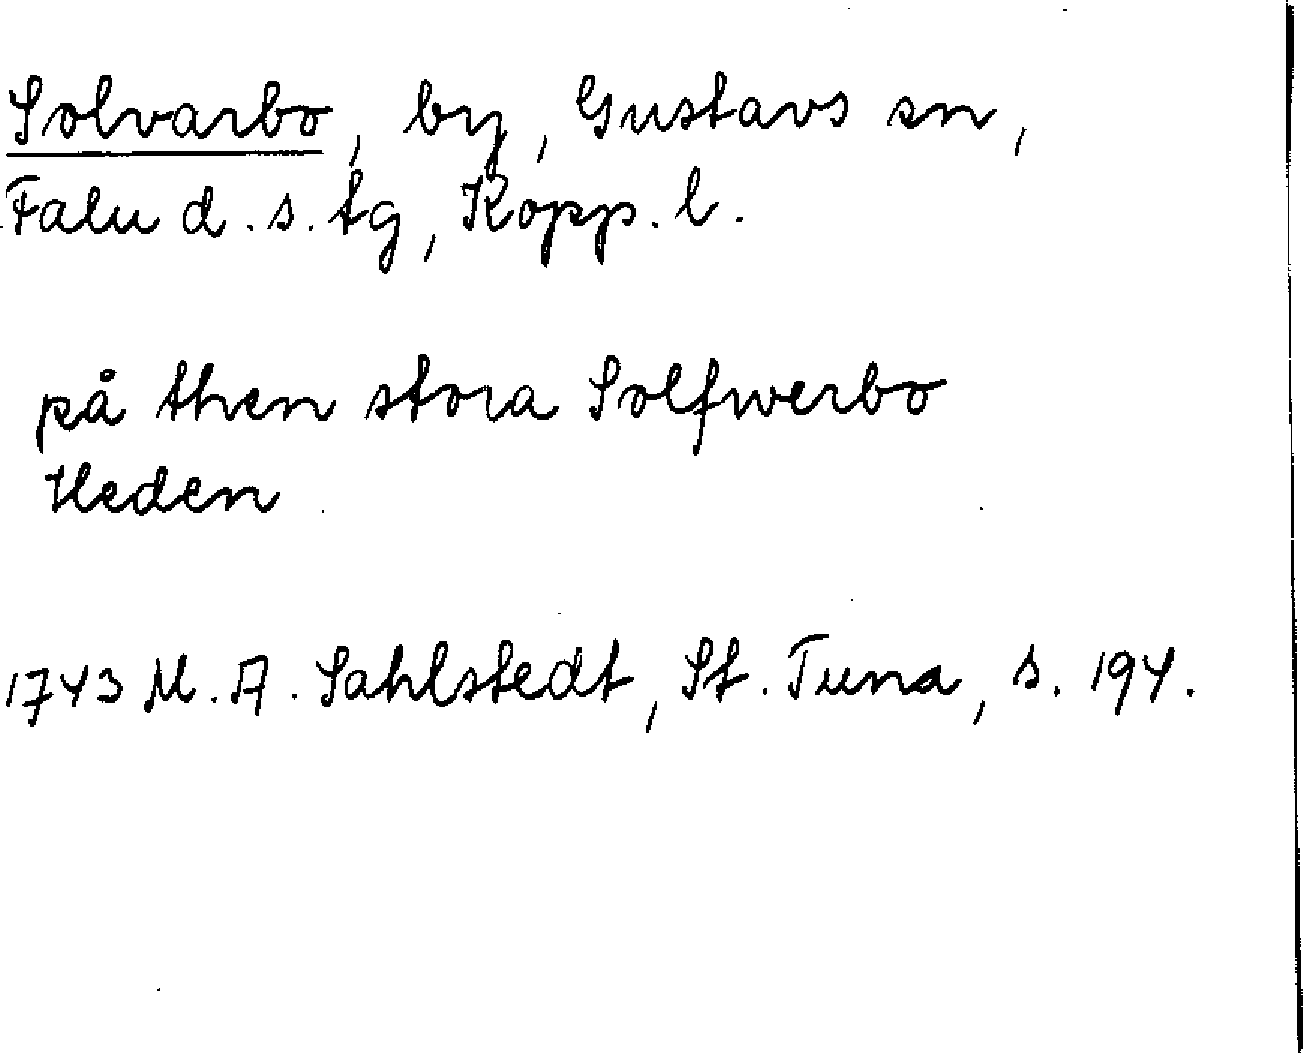 Solvarbo, by, Gustavs sn,
Falu d.s. tg, Kopp. l.
på then stora Solfwerbo
Heden
1743 M. A. Sahlstedt, St. Tuna, s. 194.